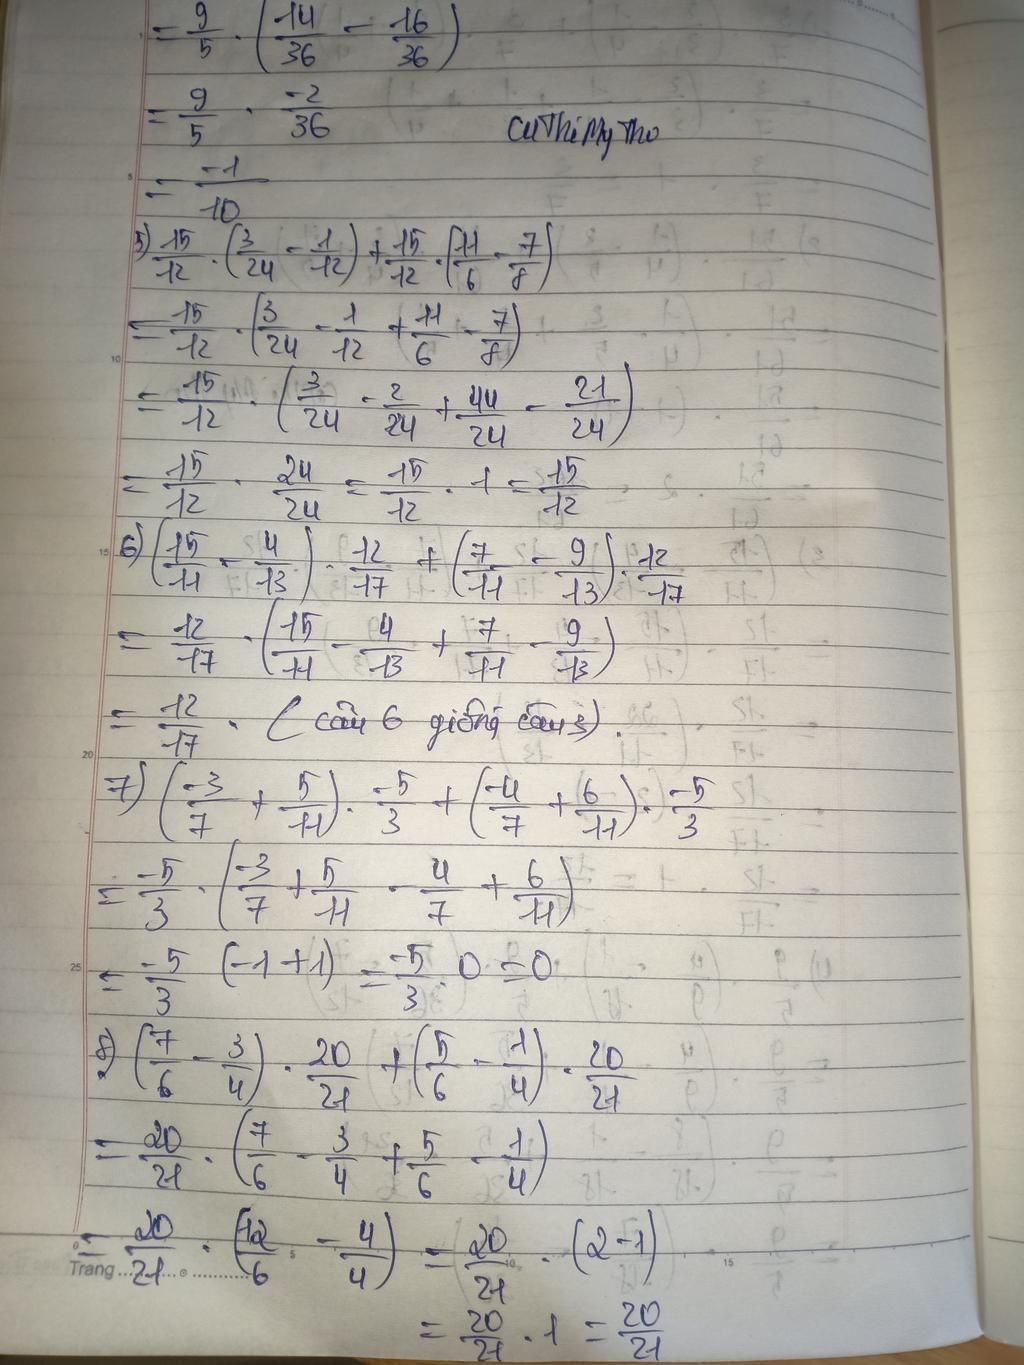 = 9/5 . (14/36 - 16/36)
= 9/5 . -2/36
CuThiMyTho
= -1/10
5) 15/12 . (3/24 - 1/12) + 15/12 . (11/6 - 7/8)
= 15/12 . (3/24 - 1/12 + 11/6 - 7/8)
= 15/12 . (3/24 - 2/24 + 44/24 - 21/24)
= 15/12 . 24/24 = 15/12 . 1 = 15/12
6) (15/11 - 4/13) . 12/17 + (7/11 - 9/13) . 12/17
= 12/17 . (15/11 - 4/13 + 7/11 - 9/13)
= 12/17 . (câu 6 giống câu 3).
7) (-3/7 + 5/11) . -5/3 + (-4/7 + 6/11) . -5/3
= -5/3 . (-3/7 + 5/11 - 4/7 + 6/11)
= -5/3 (-1+1) = -5/3 . 0 = 0
8) (7/6 - 3/4) . 20/21 + (5/6 - 1/4) . 20/21
= 20/21 . (7/6 - 3/4 + 5/6 - 1/4)
= 20/21 . (12/6 - 4/4) = 20/21 . (2-1)
Trang
= 20/21 . 1 = 20/21